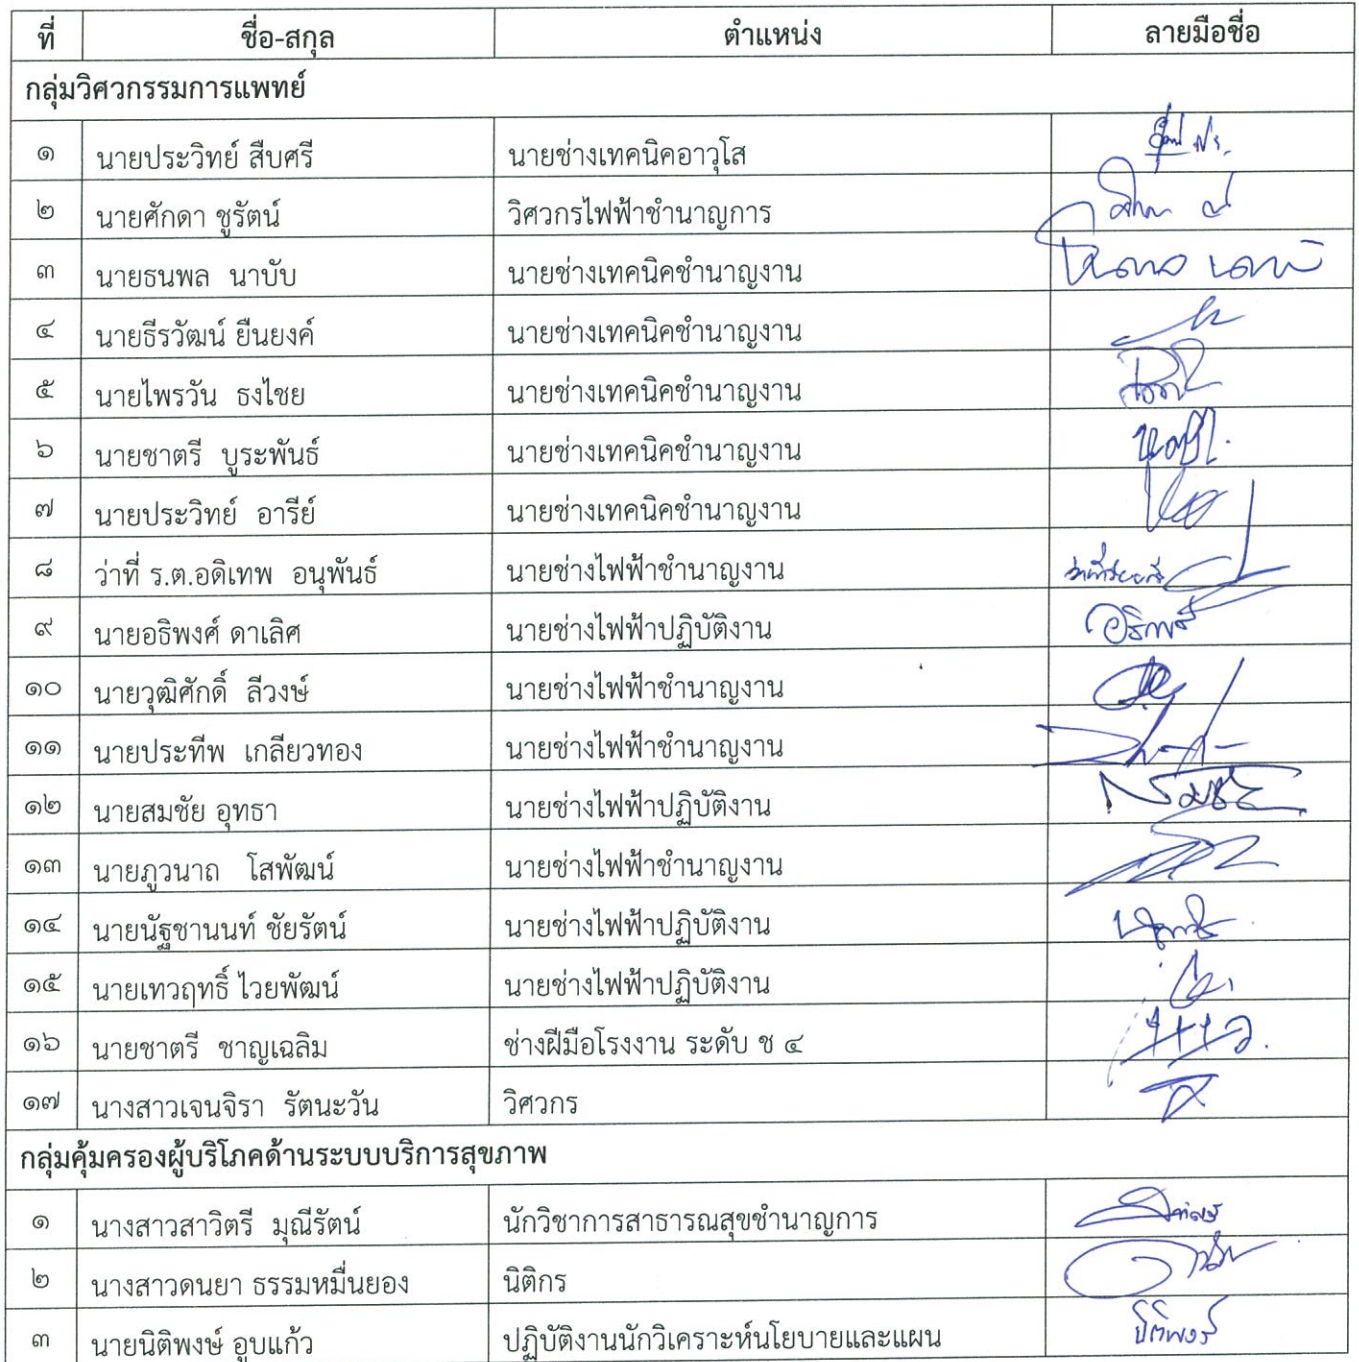 ที่ ชื่อ-สกุล ตำแหน่ง ลายมือชื่อ
กลุ่มวิศวกรรมการแพทย์
๑ นายประวิทย์ สืบศรี นายช่างเทคนิคอาวุโส
๒ นายศักดา ชูรัตน์ วิศวกรไฟฟ้าชำนาญการ
๓ นายธนพล นาบับ นายช่างเทคนิคชำนาญงาน
๔ นายธีรวัฒน์ ยืนยงค์ นายช่างเทคนิคชำนาญงาน
๕ นายไพรวัน ธงไชย นายช่างเทคนิคชำนาญงาน
๖ นายชาตรี บูระพันธ์ นายช่างเทคนิคชำนาญงาน
๗ นายประวิทย์ อารีย์ นายช่างเทคนิคชำนาญงาน
๘ ว่าที่ ร.ต.อดิเทพ อนุพันธ์ นายช่างไฟฟ้าชำนาญงาน
๙ นายอธิพงศ์ ดาเลิศ นายช่างไฟฟ้าปฏิบัติงาน
๑๐ นายวุฒิศักดิ์ ลีวงษ์ นายช่างไฟฟ้าชำนาญงาน
๑๑ นายประทีพ เกลียวทอง นายช่างไฟฟ้าชำนาญงาน
๑๒ นายสมชัย อุทธา นายช่างไฟฟ้าปฏิบัติงาน
๑๓ นายภูวนาถ โสพัฒน์ นายช่างไฟฟ้าชำนาญงาน
๑๔ นายนัฐชานนท์ ชัยรัตน์ นายช่างไฟฟ้าปฏิบัติงาน
๑๕ นายเทวฤทธิ์ ไวยพัฒน์ นายช่างไฟฟ้าปฏิบัติงาน
๑๖ นายชาตรี ชาญเฉลิม ช่างฝีมือโรงงาน ระดับ ช ๔
๑๗ นางสาวเจนจิรา รัตนะวัน วิศวกร
กลุ่มคุ้มครองผู้บริโภคด้านระบบบริการสุขภาพ
๑ นางสาวสาวิตรี มุณีรัตน์ นักวิชาการสาธารณสุขชำนาญการ
๒ นางสาวดนยา ธรรมหมื่นยอง นิติกร
๓ นายนิติพงษ์ อูบแก้ว ปฏิบัติงานนักวิเคราะห์นโยบายและแผน